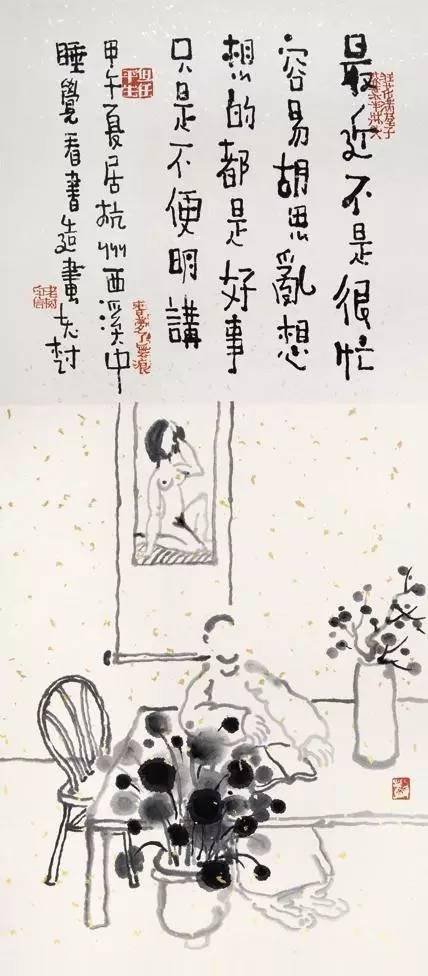 最近不是很忙
容易胡思亂想
想的都是好事
只是不便明講
甲午夏居杭州西溪中
睡覺看書造畫老樹